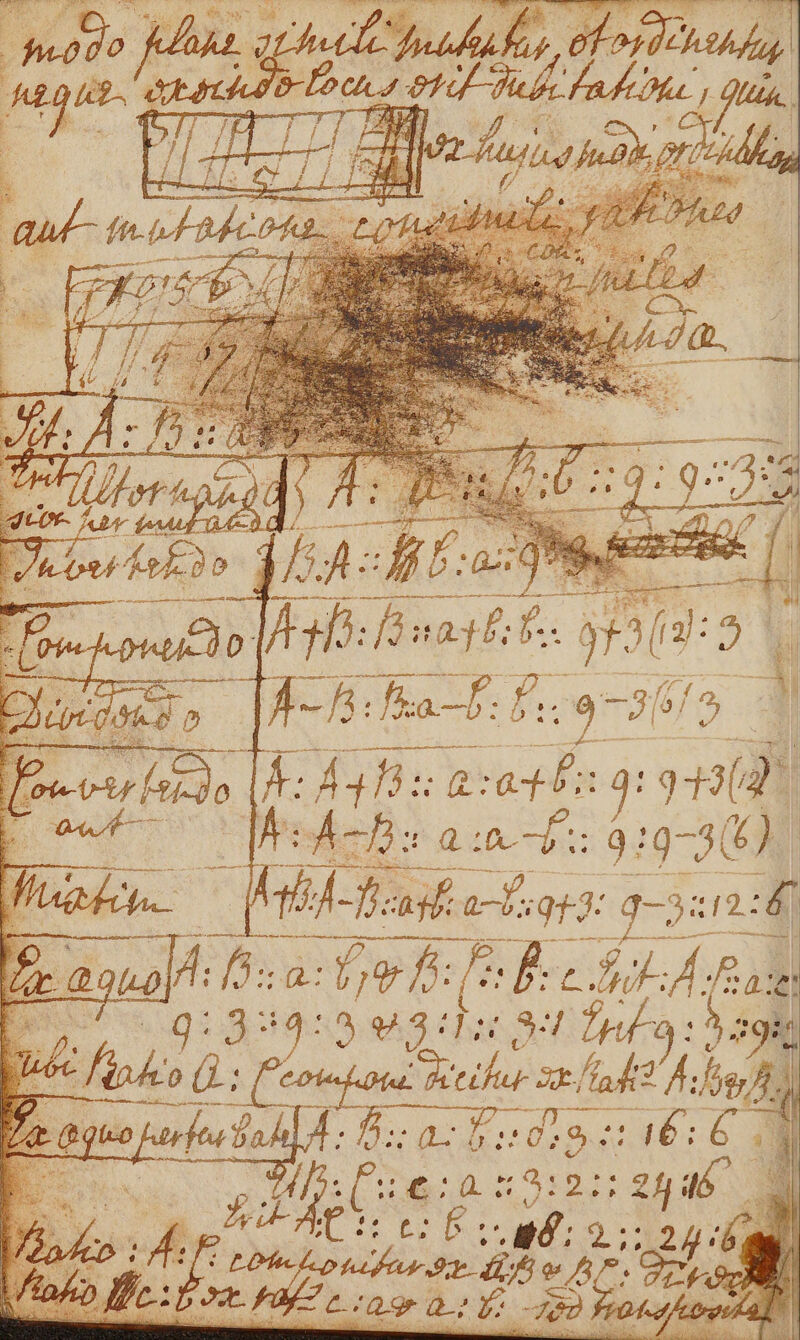 modo plane simili mutentur, et ordinentur
neque exinde locus erit dubitationi, quin
ex hujusmodi ordination
aut mutatione consimili, rationes
con:
miles
undæ
Sit: A: B :: a
Erit Alternando } A: a :: B: b :: 9: 9 :: 3: 3
sive permutando
Invertendo } B: A :: b: a :: 9: 3.
Componendo A+B: B :: a+b: b :: 9+3(12): 3
Dividendo A-B: B :: a-b: b :: 9-3(6) 3
Convertendo A: A+B :: a: a+b :: 9: 9+3(12)
aut A: A-B :: a: a-b :: 9: 9-3(6)
Mixtim A+B: A-B :: a+b: a-b :: 9+3: 9-3 :: 12: 6
Ex æquo A: B :: a: b, & B: C :: b: c. Erit: A: C :: a: c
9: 3 :: 9: 3 & 3: 1 :: 3: 1 Erit 9: 3 :: 9:
ubi Ratio A: C componi dicitur ex Rati? A: B & B.
Ex æquo perturbate A: B :: a: b :: 8: 3 :: 16: 6
U B: C :: c: a :: 3: 2 :: 24: 16
Erit A: C :: c: b :: 8: 2 :: 24: 6
Ratio: A: C: componitur ex A: B & B C: directe
Ratio c: b ex rati? c: a & a: b: sed transposite